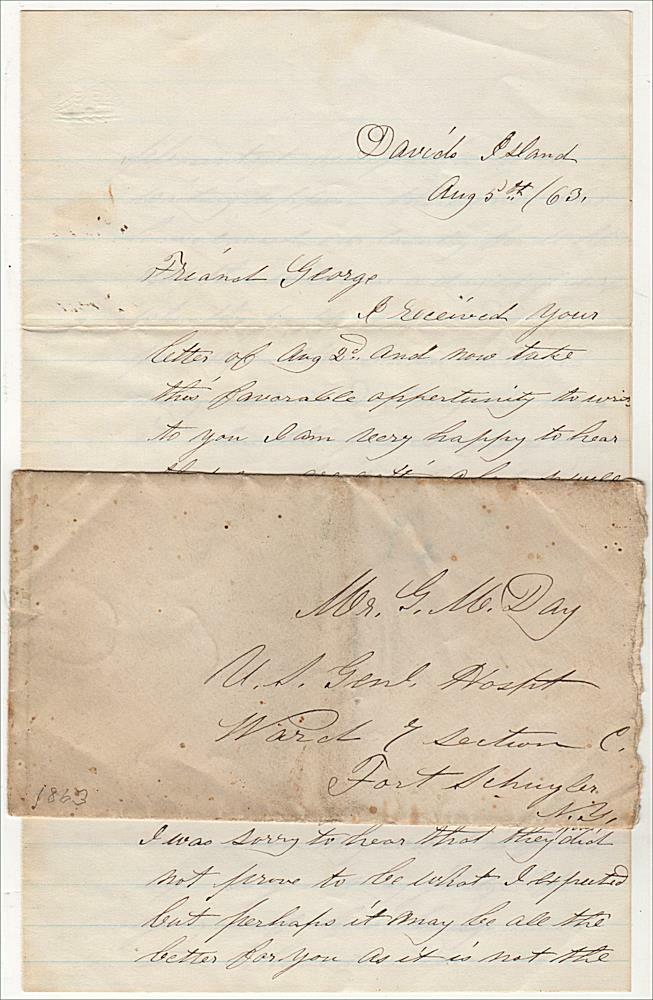 Davids Island
Aug 5th /63.
Friend George
I received your
letter of Aug 2d. and now take
this favorable oppertunity to write
to you I am very happy to hear
Mr. G. M. Day
U. S. Genl. Hospt
Ward 7 section C.
Fort Schuyler
N.Y.
1863
I was sorry to hear that they did
not prove to be what I expected
but perhaps it may be all the
better for you as it is not the